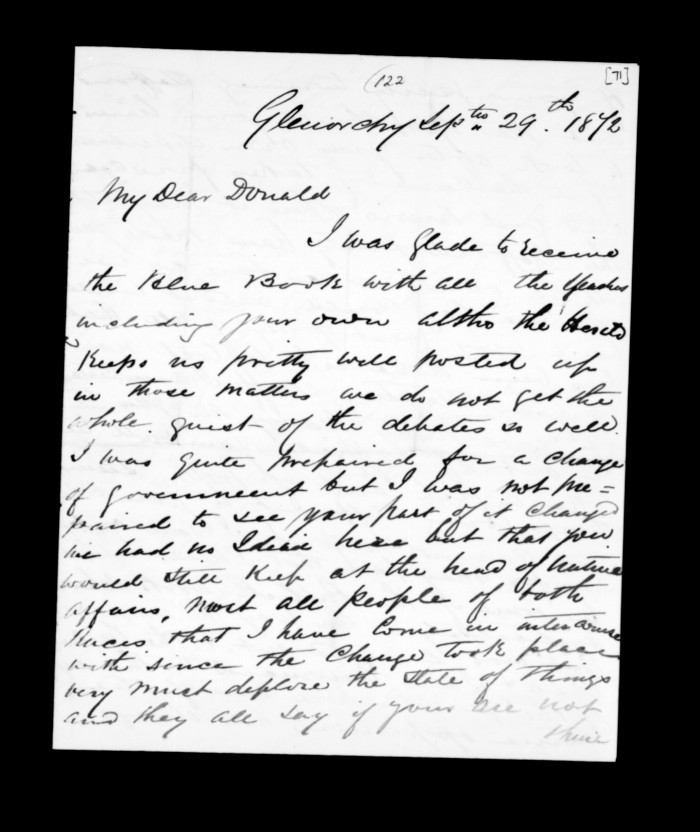 (122
[71]
Glenorchy Septm 29th. 1872
My Dear Donald
I was glade to receive
the Blue Book with all the speaches
including your own altho the Herald
Keeps us pritty well posted up
in those matters we do not get the
whole guist of the debates so well.
I was quite prepaired for a change
of government but I was not pre=
paired to see your part of it changed
we had no Idiea here but that you
would still Keep at the head of native
affairs, most all people of both
Races that I have Come in intercourse
with since the Change took place
very must deplore the state of things
and they all say if your are not
there